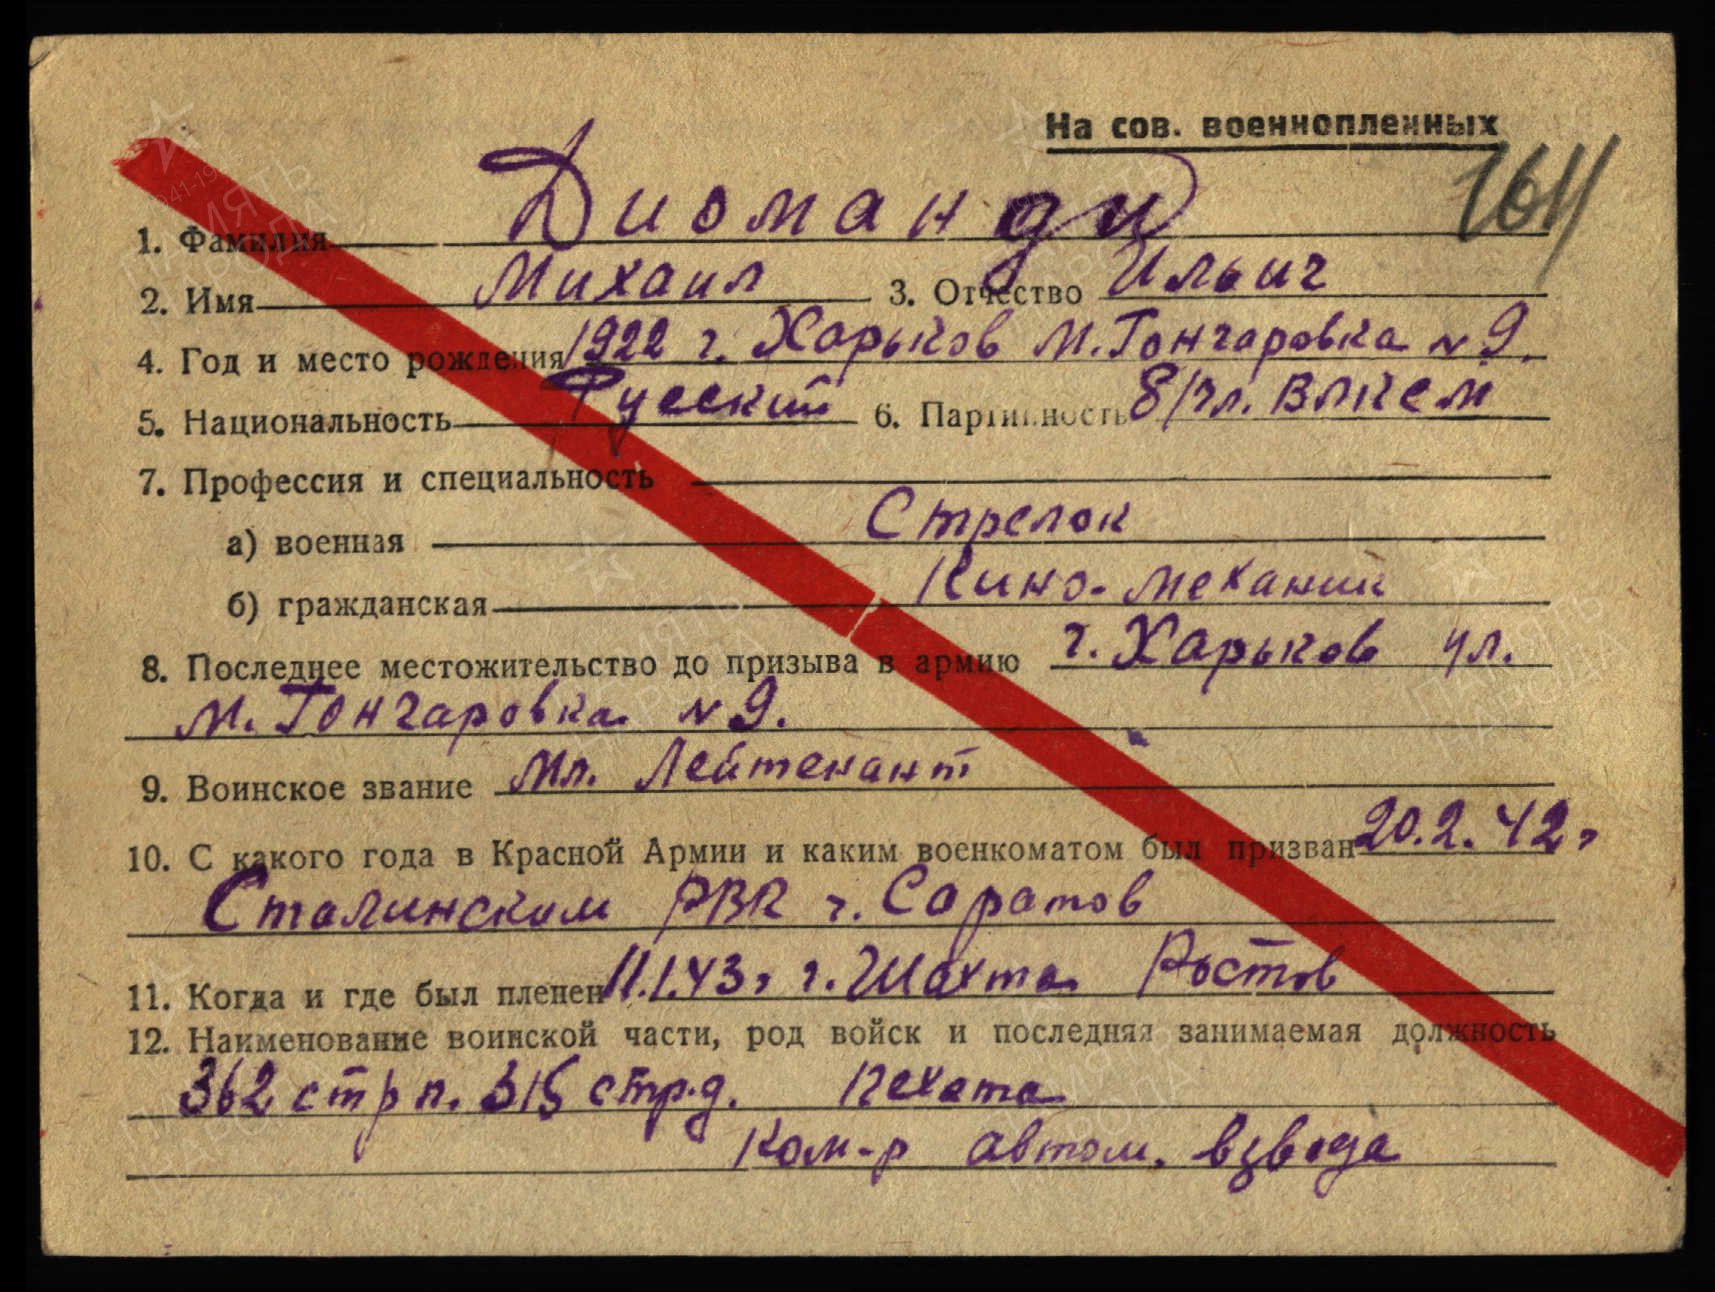 На сов. военнопленных
1611
1. Фамилия Диоманди
2. Имя Михаил 3. Отчество Ильич
4. Год и место рождения 1922 г. Харьков М. Гончаровка N 9.
5. Национальность Русский 6. Партийность б/чл. ВЛКСМ
7. Профессия и специальность
а) военная Стрелок
б) гражданская Кино-механик
8. Последнее местожительство до призыва в армию г. Харьков ул.
М. Гончаровка N 9.
9. Воинское звание Мл. Лейтенант
10. С какого года в Красной Армии и каким военкоматом был призван 20.2.42 г
Сталинским РВК г. Саратов
11. Когда и где был пленен 11.1.43 г г. Шахта Ростов
12. Наименование воинской части, род войск и последняя занимаемая должность
362 стр п. 315 стр.д. пехота
Ком-р автом. взвода